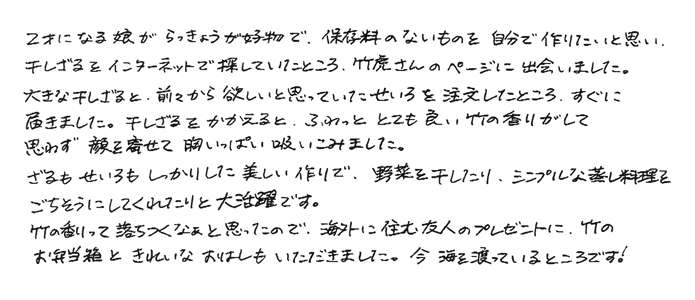 2才になる娘がらっきょうが好物で、保存料のないものを自分で作りたいと思い、
干しざるをインターネットで探していたところ、竹虎さんのページに出会いました。
大きな干しざると、前々から欲しいと思っていたせいろを注文したところ、すぐに
届きました。干しざるをかかえると、ふわっととても良い竹の香りがして
思わず顔を寄せて胸いっぱい吸いこみました。
ざるもせいろもしっかりした美しい作りで、野菜を干したり、シンプルな蒸し料理を
ごちそうにしてくれたりと大活躍です。
竹の香りって落ちつくなぁと思ったので、海外に住む友人のプレゼントに、竹の
お弁当箱ときれいなおはしもいただきました。今海を渡っているところです!